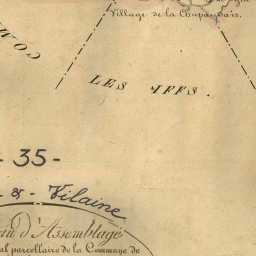 Village de la Coupaudais.
COM
LES IFFS.
- 35 -
- & - Vilaine
d'Assemblage
parcellaire de la Commune de